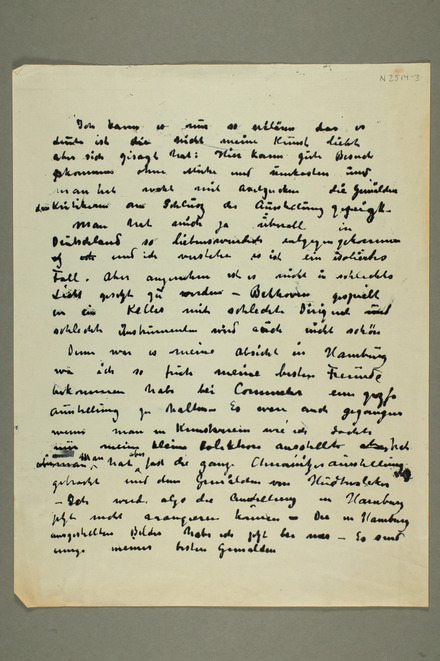 N 2514-3
Ich kann es mir so erklären das es
ist die nicht meine Kunst liebt
aber sich gesagt hat: Hier kann gute Besuch
gekommen ohne und unkosten und
man hat wohl mit die Gemälden
Kritikern am Schluss der Ausstellung gezeigt.
Man hat mich ja überall in
Deutschland so liebenswürdig entgegengekommen
und ich verstehe es ist ein isoliertes
Fall. Aber angenehm ist es nicht in schlechte
Licht gesetzt zu werden – Bethoven gespielt
in ein Keller mit schlechte Dirigent und
schlecht Instrumenten wird auch nicht schön
Denn war es meine Absicht in Hamburg
wo ich so früh meine besten Freunde
bekommen habe bei Commeter ein grosse
austellung zu halten – Es war auch gegangen
wenn man im Kunstverein wie ich dachte
nur meine kleine ausstellte
man hat aber fast die ganze ausstellung
gebracht und dem Gemälden von Hudtwalcker
– Ich werde also die Austellung in Hamburg
jetzt nicht arrangieren können – Die in Hamburg
ausgestellten Bilder habe ich jetzt bei mir – Es sind
einige meiner besten Gemälden